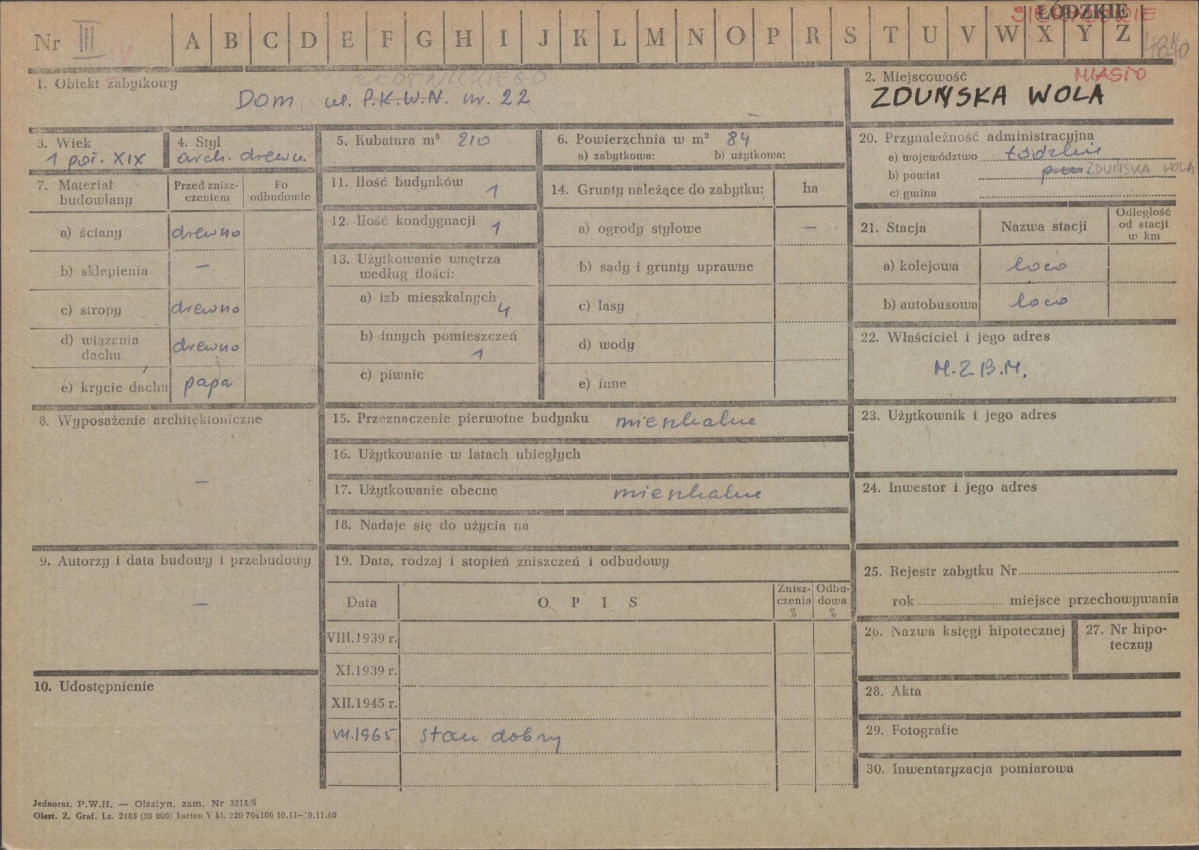 SIERADZKIE
ŁÓDZKIE
Nr III A B C D E F G H I J K L M N O P R S T U V W X Y Z
1. Obiekt zabytkowy
ZŁOTNICKIEGO
Dom ul. P.K.W.N. nr. 22
2. Miejscowość
MIASTO
ZDUŃSKA WOLA
3. Wiek
1 poł. XIX
4. Styl
arch. drewn.
5. Kubatura m³ 210
6. Powierzchnia w m² 84
a) zabytkowa: b) użytkowa:
20. Przynależność administracyjna
a) województwo Łódzkie
b) powiat ZDUŃSKA WOLA
c) gmina
7. Materiał budowlany
Przed zniszczeniem
Po odbudowie
a) ściany drewno
b) sklepienia –
c) stropy drewno
d) wiązania dachu drewno
e) krycie dachu papa
11. Ilość budynków 1
12. Ilość kondygnacji 1
13. Użytkowanie wnętrza
według ilości:
a) izb mieszkalnych 4
b) innych pomieszczeń 1
c) piwnic
14. Grunty należące do zabytku: ha
a) ogrody stylowe –
b) sady i grunty uprawne
c) lasy
d) wody
e) inne
21. Stacja
Nazwa stacji
Odległość od stacji w km
a) kolejowa loco
b) autobusowa loco
22. Właściciel i jego adres
M.Z.B.M.
8. Wyposażenie architektoniczne
–
15. Przeznaczenie pierwotne budynku mieszkalne
16. Użytkowanie w latach ubiegłych
17. Użytkowanie obecne mieszkalne
18. Nadaje się do użycia na
23. Użytkownik i jego adres
24. Inwestor i jego adres
9. Autorzy i data budowy i przebudowy
–
10. Udostępnienie
19. Data, rodzaj i stopień zniszczeń i odbudowy
Data
O P I S
Zniszczenia %
Odbudowa %
VIII.1939 r.
XI.1939 r.
XII.1945 r.
VII.1965 stan dobry
25. Rejestr zabytku Nr
rok miejsce przechowywania
26. Nazwa księgi hipotecznej
27. Nr hipoteczny
28. Akta
29. Fotografie
30. Inwentaryzacja pomiarowa
Jednoraz. P.W.H. — Olsztyn, zam. Nr 3215/S
Olszt. Z. Graf. Lz. 2466 (30 000) karton V kl. 220 70x100 10.11—30.11.60